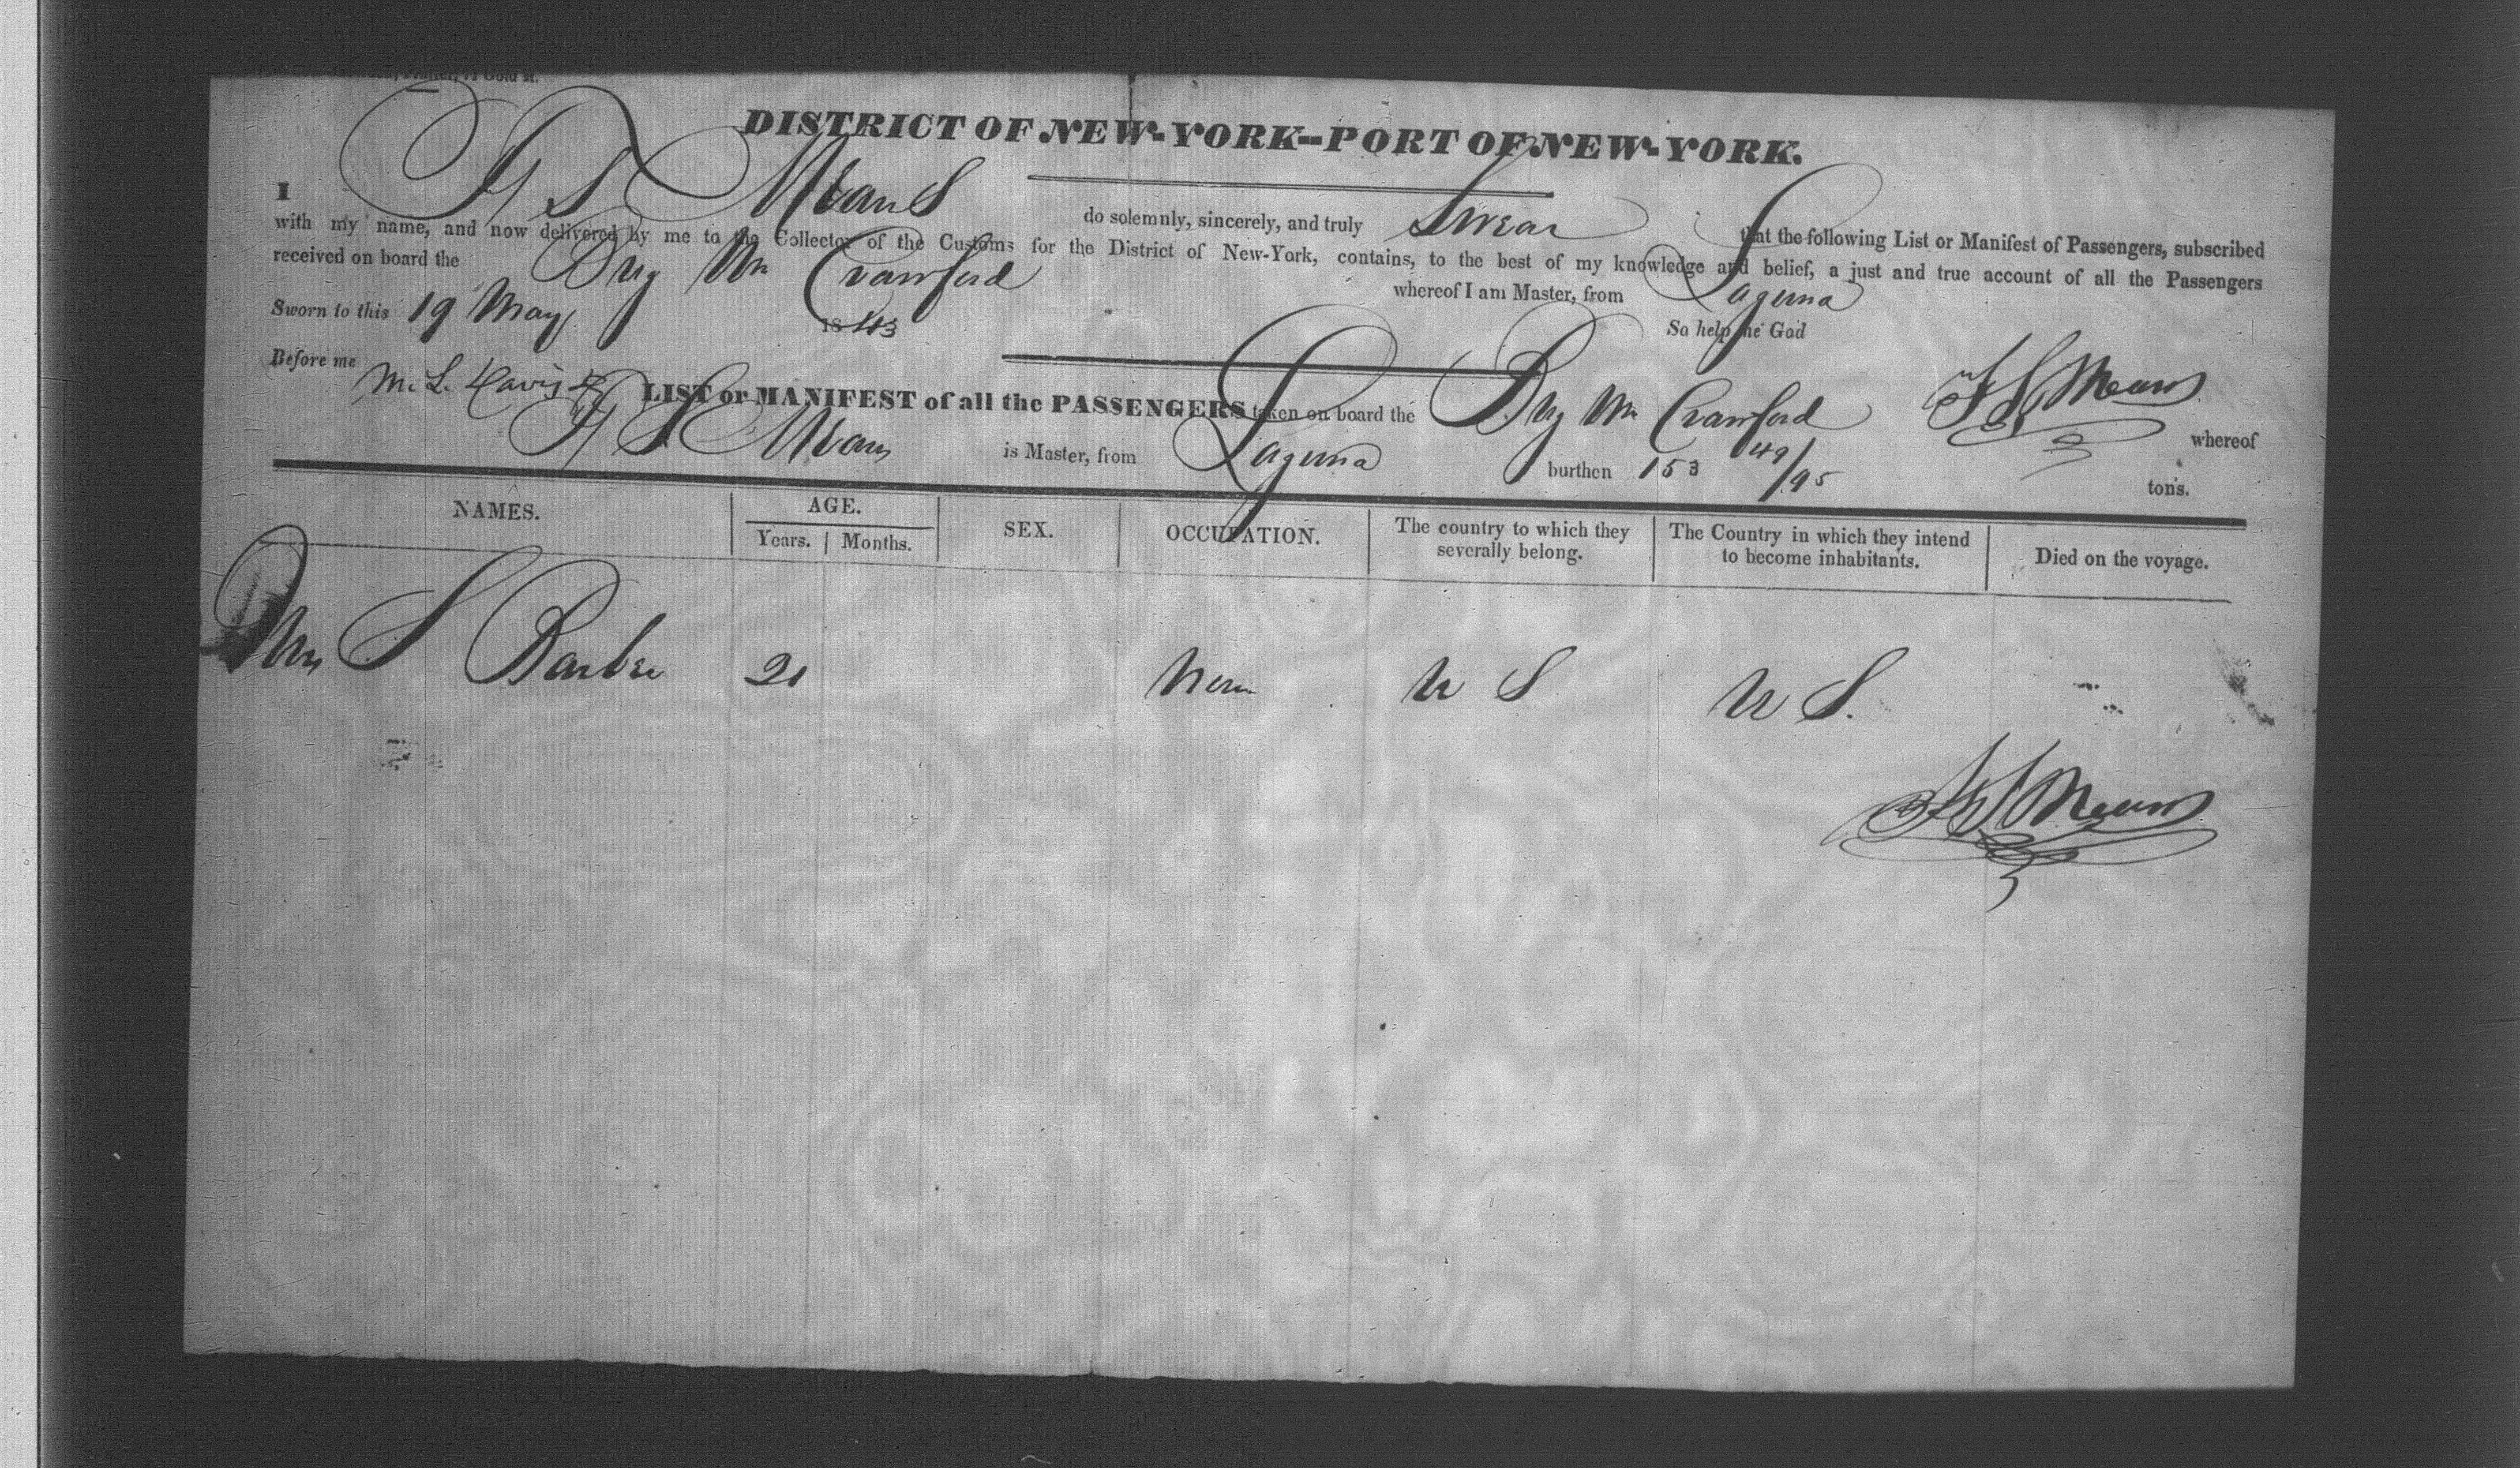 Printer, 71 Gold st.
DISTRICT OF NEW-YORK--PORT OF NEW-YORK.
I F S Means do solemnly, sincerely, and truly Swear that the following List or Manifest of Passengers, subscribed
with my name, and now delivered by me to the Collector of the Customs for the District of New-York, contains, to the best of my knowledge and belief, a just and true account of all the Passengers
received on board the Brig Wm Crawford whereof I am Master, from Laguna
Sworn to this 19 May 1843 So help me God
Before me M. L. Davis F S Means
LIST or MANIFEST of all the PASSENGERS taken on board the Brig Wm Crawford whereof
F S Means is Master, from Laguna burthen 153 49/95 tons.
NAMES. AGE. SEX. OCCUPATION. The country to which they severally belong. The Country in which they intend to become inhabitants. Died on the voyage.
Years. Months.
S Barber 21 U S U S.
F S Means